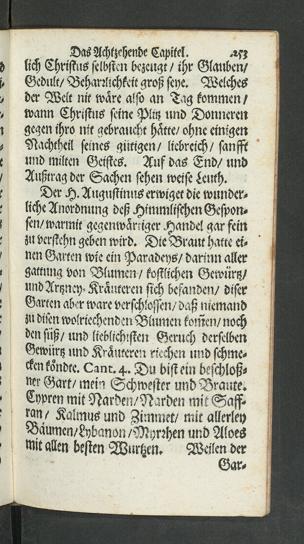 Das Achtzehende Capitel. 253
lich Christus selbsten bezeugt / ihr Glauben /
Gedult / Beharrlichkeit groß seye. Welches
der Welt nit wäre also an Tag kommen /
wann Christus seine Plitz und Donneren
gegen ihro nit gebraucht hätte / ohne einigen
Nachtheil seines gütigen / liebreich / sanfft
und milten Geistes. Auf das End / und
Außtrag der Sachen sehen weise Leuth.
Der H. Augustinus erwiget die wunder-
liche Anordnung deß Himmlischen Gespon-
sen / warmit gegenwäriger Handel gar fein
zu verstehn geben wird. Die Braut hatte ei-
nen Garten wie ein Paradeys / darinn aller
gattung von Blumen / kostlichen Gewürtz /
und Artzney-Kräuteren sich befanden / diser
Garten aber ware verschlossen / daß niemand
zu disen wolriechenden Blumen kom̄en / noch
den süß / und lieblichisten Geruch derselben
Gewürtz und Kräuteren riechen und schme-
cken köndte. Cant. 4. Du bist ein beschloß-
ner Gart / mein Schwester und Braute.
Cypren mit Narden / Narden mit Saff-
ran / Kalmus und Zimmet / mit allerley
Bäumen / Lybanon / Myrrhen und Aloes
mit allen besten Wurtzen. Weilen der
Gar-